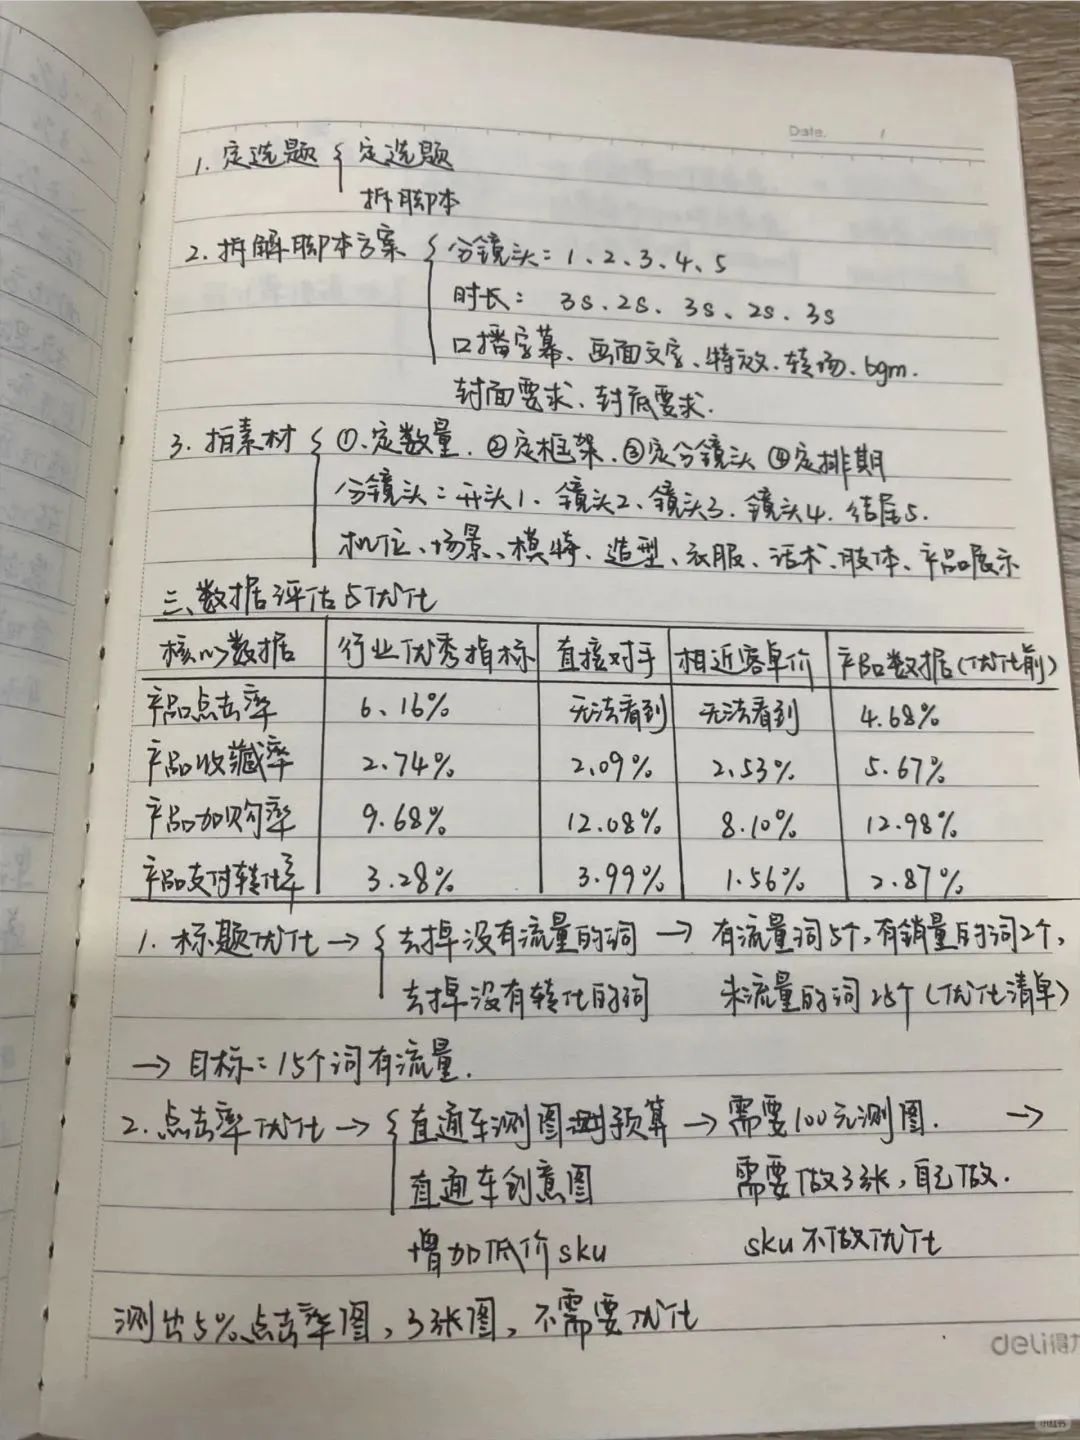 Date. /
1. 定选题 { 定选题
拆脚本
2. 拆解脚本方案 { 分镜头: 1、2、3、4、5
时长: 3s、2s、3s、2s、3s
口播字幕、画面文字、特效、转场、bgm.
封面要求、封底要求.
3. 拍素材 { ①.定数量. ②定框架. ③定分镜头 ④定排期
分镜头: 开头1、镜头2、镜头3、镜头4、结尾5.
机位、场景、模特、造型、衣服、话术、肢体、产品展示
三、数据评估与优化
核心数据 行业优秀指标 直接对手 相近客单价 产品数据(优化前)
产品点击率 6.16% 无法看到 无法看到 4.68%
产品收藏率 2.74% 2.09% 2.53% 5.67%
产品加购率 9.68% 12.08% 8.10% 12.98%
产品支付转化率 3.28% 3.99% 1.56% 2.87%
1. 标题优化 → { 去掉没有流量的词 → 有流量词5个,有销量的词2个,
去掉没有转化的词 流量的词25个(优化清单)
→ 目标: 15个词有流量.
2. 点击率优化 → { 直通车测图 预算 → 需要100元测图. →
直通车创意图 需要做3张,自己做.
增加低价sku sku不做优化
测出5%点击率图,3张图,不需要优化
deli得力
小红书